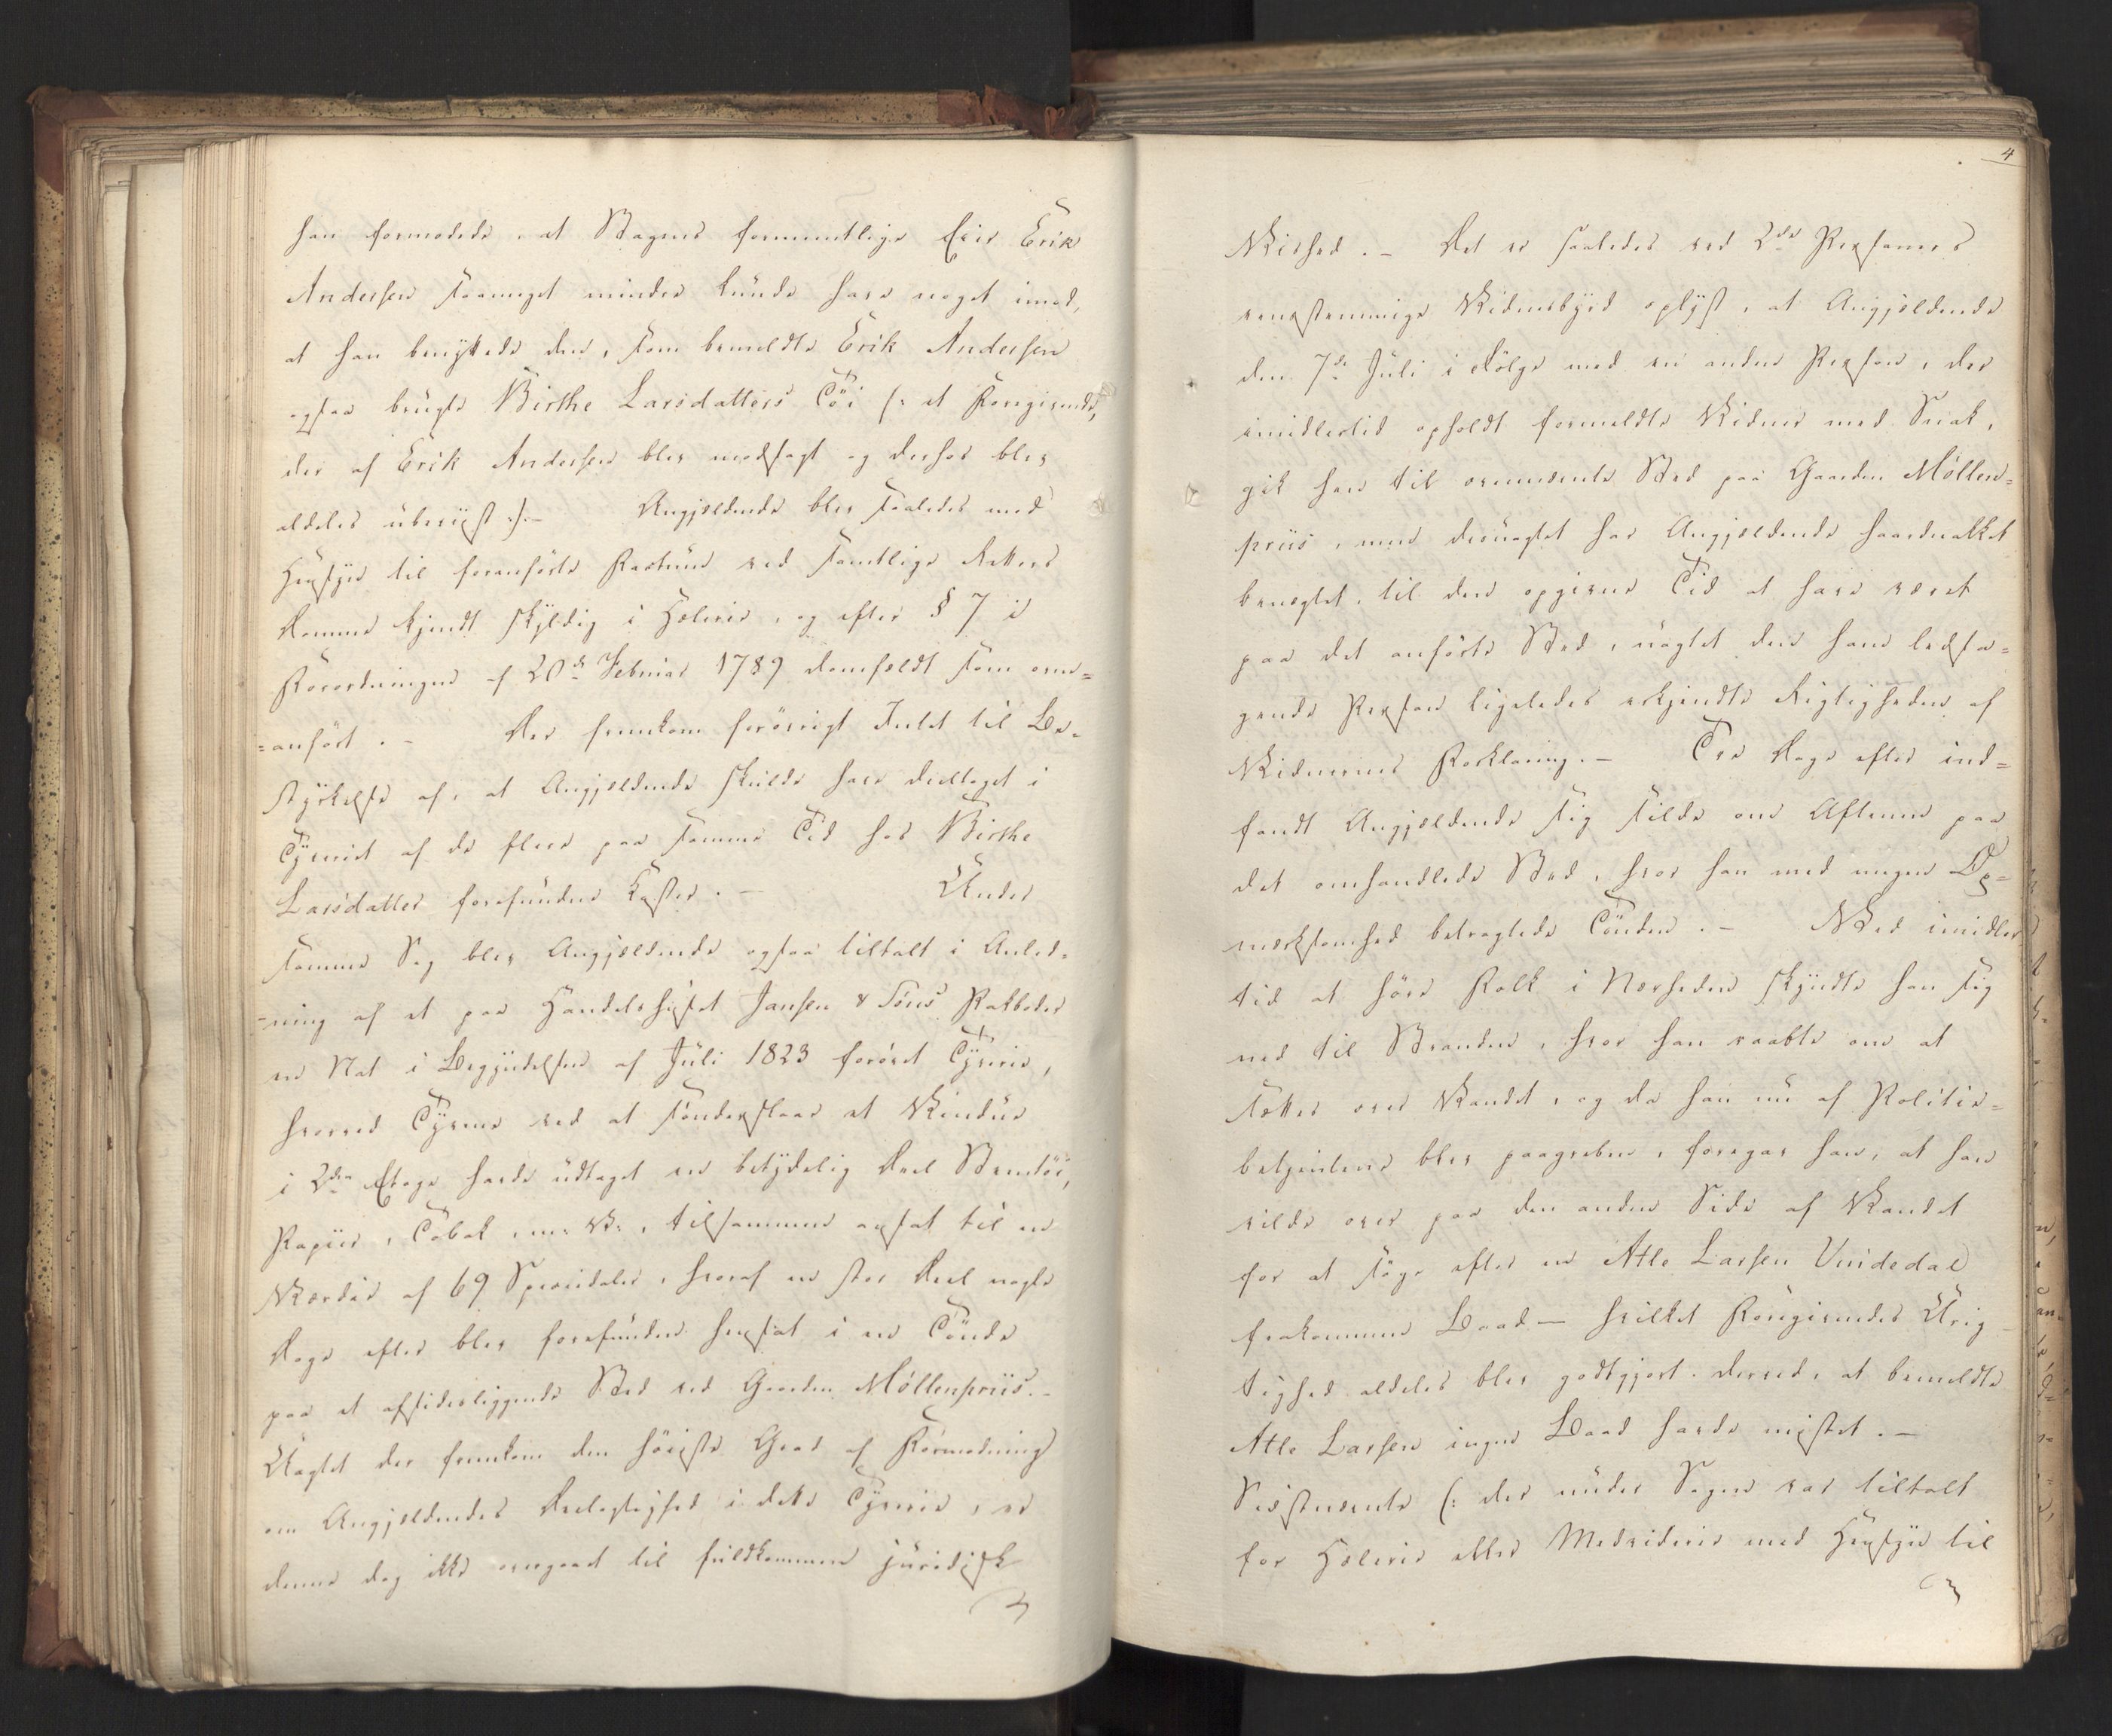 han formodede, at Bagens formentlige Eier Erik
Andersen saameget mindre kunde have noget imod,
at han benyttede den, som bemeldte Erik Andersen
ogsaa brugte Birthe Larsdatters Töi (: et Foregivende,
der af Erik Andersen blev modsagt og derfor blev
aldeles ubeviist :).- Angjeldende blev saaledes med
Hensyn til foranförte Factum ved samtlige Retters
Domme kjendt skyldig i Hæleri, og efter § 7 i
Forordningen af 20de Februar 1789 domfældt som oven=
=anfört. - Der fremkom forövrigt Intet til Be=
styrkelse af, at Angjeldende skulde have deeltaget i
Tyveriet af de flere paa samme Tid hos Birthe
Larsdatter forefundne Koster. - Under
samme Sag blev Angjeldende ogsaa tiltalt i Anled=
=ning af et paa Handelshuset Jansen & Söns Pakboder
en Nat i Begyndelsen af Juli 1823 forövet Tyverie,
hvorved Tyvene ved at sönderslaae et Vindue
i 2den Etage havde udtaget en betydelig Deel
Papiir, Tobak, m: V:, tilsammen ansat til en
Værdie af 69 Speciedaler, hvoraf en stor Deel nogle
Dage efter blev forefunden hensat i en Tönde
paa et afsidesliggende Sted ved Gaarden Möllenpriis.-
Uagtet der fremkom den höieste Grad af Formodning
om Angjeldendes Deelagtighed i dette Tyverie, er
denne dog ikke overgaaet til fuldkommen juridisk
4
Vished. - Det er saaledes ved 2de Personers
eenstemmige Vidnesbyrd oplyst, at Angjeldende
den 7de Juli i Fölge med en anden Person, der
imidlertid opholdt formeldte Vidner med Snak,
gik hen til ovennævnte Sted paa Gaarden Möllen=
priis, men desuagtet har Angjeldende haardnakket
benægtet, til den opgivne Tid at have været
paa det anförte Sted, uagtet den ham ledsa=
gende Person ligeledes erkjendte Rigtigheden af
Vidnernes Forklaring. - Tre Dage efter ind=
fandt Angjeldende sig silde om Aftenen paa
det omhandlede Sted, hvor han med megen Op=
mærksomhed betragtede Tönden. - Ved imidler
tid at höre Folk i Nærheden skyndte han sig
ned til Stranden, hvor han raabte om at
sættes over Vandet, og da han nu af Politie=
betjentene blev paagreben, foregav han, at han
vilde over paa den anden Side af Vandet
for at söge efter en Atle Larsen Vindedal
frakommen Baad — hvilket Foregivendes Urig-
tighed aldeles blev godtgjort derved, at bemeldte
Atle Larsen ingen Baad havde mistet. -
Sidstnævnte (: der under Sagen var tiltalt
for Hæleri eller Medviderie med Hensyn til